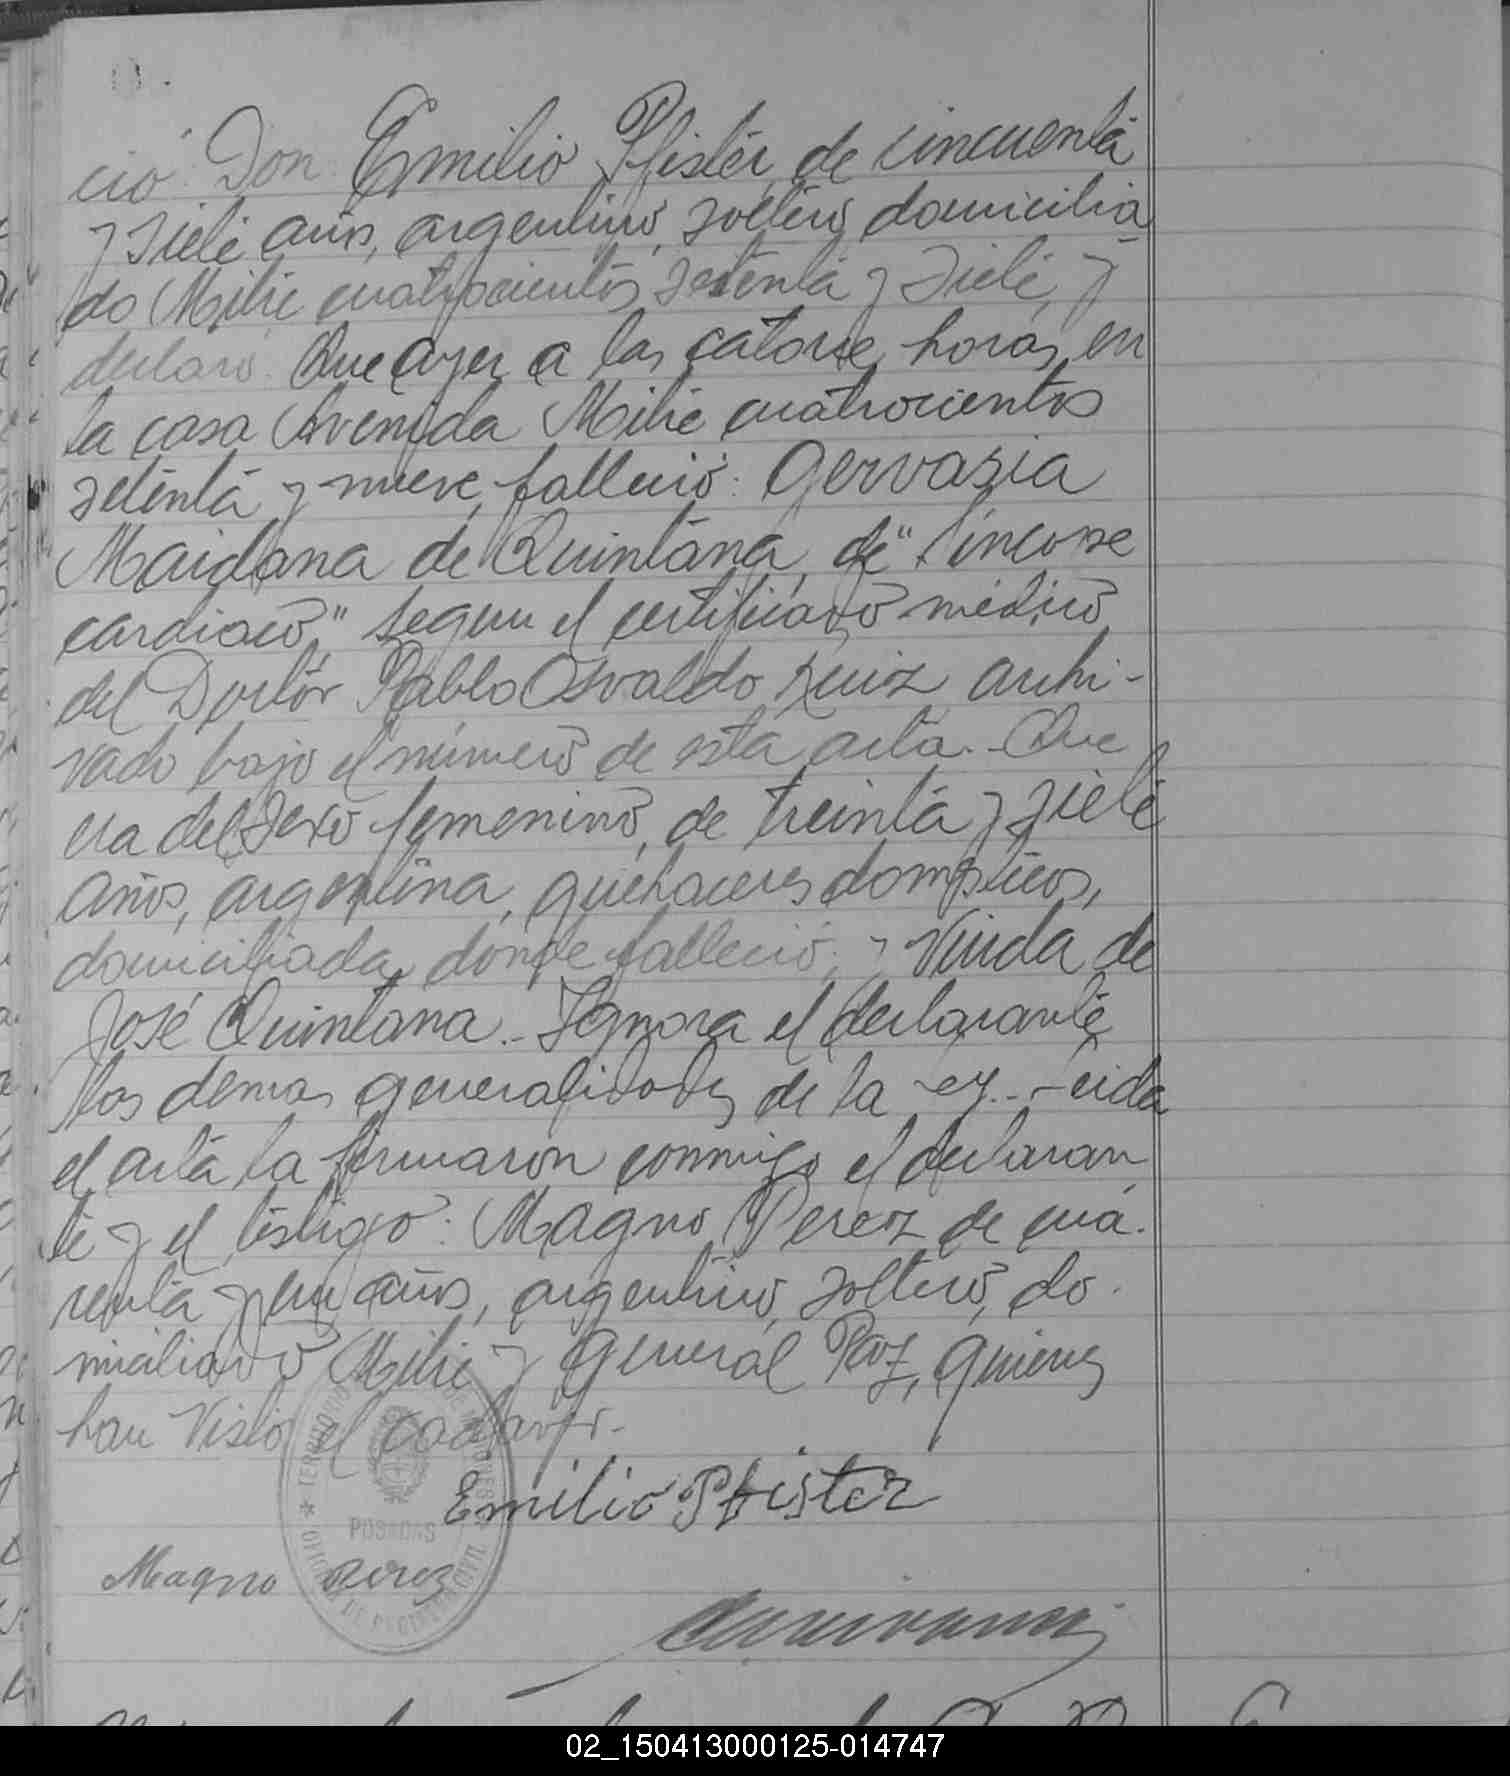 ció: Don Emilio Pfister, de cincuenta
y siete años, argentino, soltero, domicilia
do Mitre cuatrocientos setenta y siete, y
declaró: Que ayer a las catorse horas, en
la casa Avenida Mitre cuatrocientos
setenta y nueve, falleció: Gervasia
Maidana de Quintana, de "síncope
cardiaco," segun el certificado médico
del Doctor Pablo Osvaldo Ruiz, archi-
vado bajo el número de esta acta.- Que
era del sexo femenino, de treinta y siete
años, argentina, quehaceres domésticos,
domiciliada donde falleció; y Viuda de
José Quintana.- Ignora el declarante
las demas generalidades de la ley.- Leida
el acta la firmaron conmigo el declaran
te y el testigo: Magno Perez de cua-
renta y un años, argentino, soltero, do-
miciliado Mitre y General Paz, quienes
han visto el cadaver.-
Emilio Pfister
TERRITORIO DE MISIONES
POSADAS
Magno Perez
02_150413000125-014747